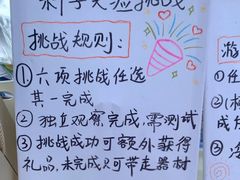 科学实验挑战
挑战规则:
①六项挑战任选
其一完成
②独立观察完成,需测试
③挑战成功可额外获得
礼品,未完成只可带走器材
游
①
成
②
③